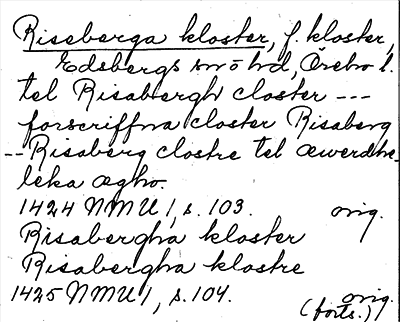 Riseberga kloster, f. kloster,
Edsbergs sn ō hd, Örebro l.
tel Risabergh closter ---
forscriffna closter Risaberg
-- Risaberg clostre tel æwerdhe-
leka ægho.
1424 NMU 1, s. 103. orig.
Risabergha kloster
Risabergha klostre
1425 NMU 1, s. 104. orig.
(forts.)